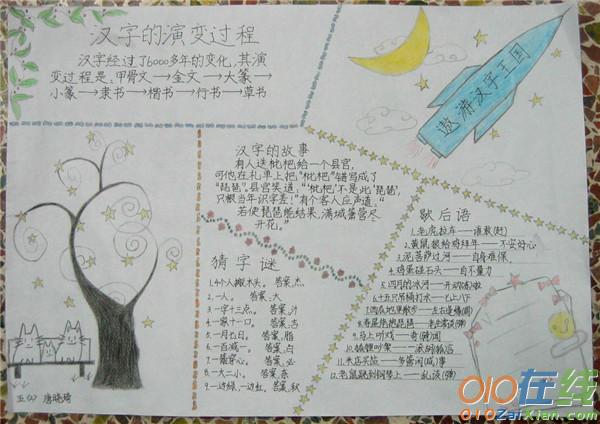 汉字的演变过程
汉字经过了6000多年的变化,其演
变过程是:甲骨文→金文→大篆→
小篆→隶书→楷书→行书→草书
遨游汉字王国
汉字的故事
有人送枇杷给一个县官,
可他在礼单上把"枇杷"错写成了
"琵琶",县官笑道:"'枇杷'不是此'琵琶',
只恨当年识字差!"有个客人应声道:"
若使琵琶能结果,满城箫管尽
开花。"
猜字谜
答案,杰
2.一人。 答案,大
3.一字十三点。 答案,汁
4.一家十一口。 答案,吉
5.一月七日。 答案,脂
6.一百减一。 答案,白
7.一最穿心。 答案,必
8.一大二小。 答案,奈
9.一边绿,一边红。答案,秋
歇后语
1.老虎拉车——谁敢(赶)
2.黄鼠狼给鸡拜年——不安好心
3.泥菩萨过河——自身难保
4.鸡蛋碰石头——自不量力
6.十五只吊桶打水——七上八下
9.马上听戏——
12.老鼠跳到钢琴上——乱谈(弹)
五(4) 唐晓琦
010在线
010ZaiXian.com